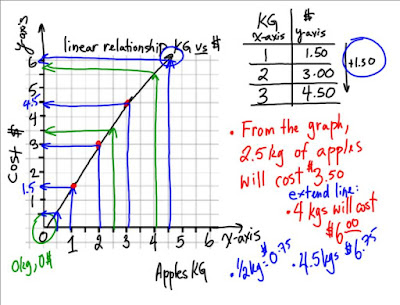 linear relationship KG vs $
y-axis
Cost $
6
5
4.5
4
3
2
1.5
1
0
1 2 3 4 5 6 x-axis
0kg, 0$
Apples KG
KG $
x-axis y-axis
1 1.50
2 3.00
3 4.50
+1.50
• From the graph,
2.5kg of apples
will cost $3.50
extend line:
• 4 kgs will cost
$6.00
• 1/2 kg = $0.75
• 4.5kgs $6.75